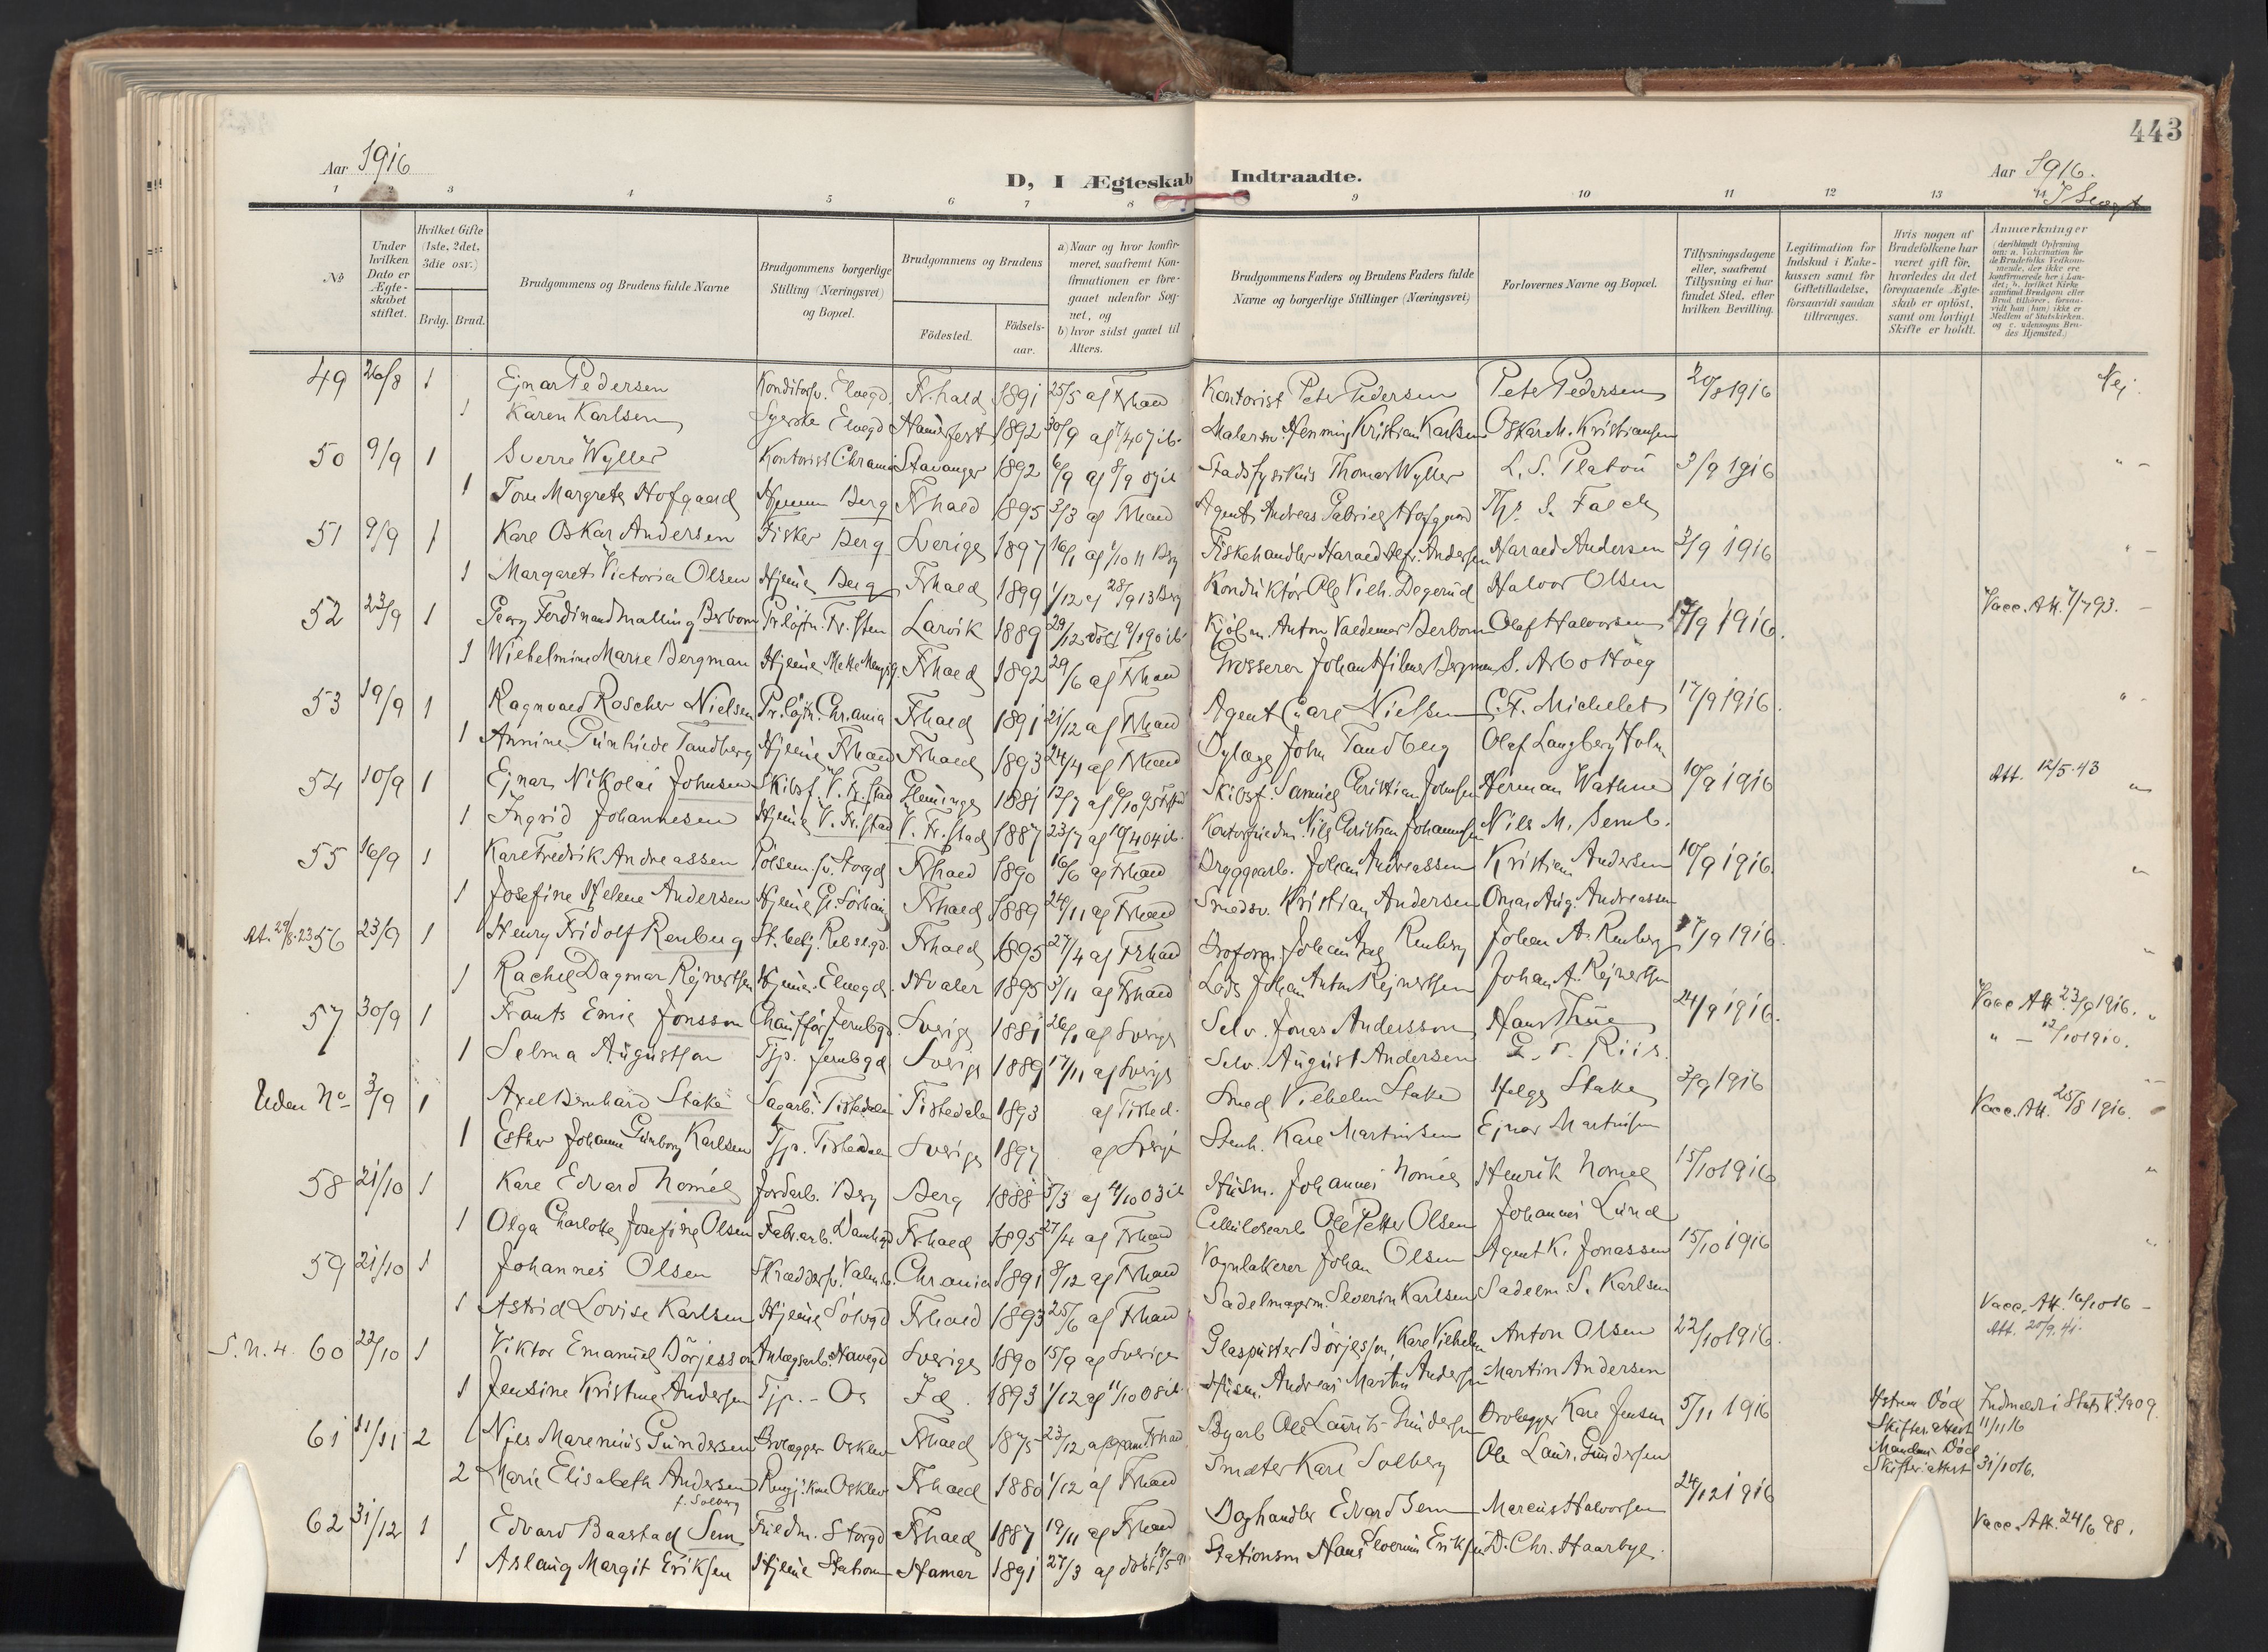 443
Aar 1916
Aar 1916.
D, I Ægteskab Indtraadte.
1 2 3 4 5 6 7 8 9 10 11 12 13
No
Under hvilken Dato er Ægteskabet stiftet.
Hvilket Gifte (1ste, 2det, 3die osv.)
Brdg. Brud.
Brudgommens og Brudens fulde Navne
Brudgommens borgerlige Stilling (Næringsvei) og Bopæl.
Brudgommens og Brudens
Födested.
Födselsaar.
a) Naar og hvor konfirmeret, saafremt Konfirmationen er foregaaet udenfor Sognet, og b) hvor sidst gaaet til Alters.
Brudgommens Faders og Brudens Faders fulde Navne og borgerlige Stillinger (Næringsvei)
Forlovernes Navne og Bopæl.
Tillysningsdagene eller, saafremt Tillysning ei har fundet Sted, efter hvilken Bevilling.
Legitimation for Indskud i Enkekassen samt for Giftetilladelse, forsaavidt saadan tiltrænges.
Hvis nogen af Brudefolkene har været gift för, hvorledes da det foregaaende Ægteskab er oplöst, samt om lovligt Skifte er holdt.
Anmærkninger (deriblandt Oplysning om: a. Vakcination for de Brudefolks Vedkommende, der ikke ere konfirmerede her i Landet; b. hvilket Kirkesamfund Brudgom eller Brud tilhörer, forsaavidt han (hun) ikke er Medlem af Statskirken, og c. udensogns Brudes Hjemsted.)
49 26/8 1 Ejnar Pedersen Konditorsv. Elvegd. Fr.hald 1891 25/5 af Frhald Kontorist Peter Pedersen Peter Pedersen 20/8 1916 Nej
1 Karen Karlsen Syerske Elvegd Hamerfest 1892 30/9 af 7/4 07 ib. Malersv. Henning Kristian Karlsen Oskar M. Kristiansen
50 9/9 1 Sverre Wyller Kontorist Chrania Stavanger 1892 6/9 af 8/9 07 ib Stadsfysikus Thomas Wyller L. S. Platou 3/9 1916 " -
1 Margrete Hofgaard Hjemme Berg Frhald 1895 3/3 af Frhald Agent Andreas Gabriel Hofgaard Th. S. Falck
51 9/9 1 Karl Oskar Andersen Fisker Berg Sverige 1897 Fiskehandler Harald Alfr. Andersen Harald Andersen 3/9 1916 " -
1 Margaret Victoria Olsen Hjeme Berg Frhald 1899 1/12 af 28/9 13 Berg Konduktör Ole Vilh. Degerud Halvor Olsen
52 23/9 1 Ferdinand Malling Berbom Pr.löjtn. Fr.sten Larvik 1889 29/12 Kjöbm. Anton Valdemar Berbom Olaf Halvorsen 17/9 1916. Vacc. Att. 7/7 93. -
1 Wilhelmine Marie Bergman Hjeme Frhald 1892 29/6 af Frhald Grosserer Johan Hilmer Bergman S. Arbo Höeg
53 19/9 1 Ragnvald Roscher Nielsen Pr.löjtn. Chr.ania Frhald 1891 21/12 af Frhald Agent Carl Nielsen C. F. Michelet 17/9 1916. " -
1 Annine Gunhilde Tandberg Hjeme Frhald Frhald 1893 24/4 af Frhald Dylæge John Tandberg Olaf Langberg Holm
54 10/9 1 Ejnar Nikolai Johnsen Skibsf. V. Fr.stad Gleminge 1881 12/7 af 6/10 95 Skibsf. Samuel Christian Johnsen Herman Wathne 10/9 1916 Att. 12/5.43 "
1 Ingrid Johannesen Hjeme V. Fr.stad V. Fr.stad 1887 23/7 af 10/4 04 ib. Nils Christian Johannesen Nils M. Semb.
55 16/9 1 Karl Fredrik Andreassen Pölsem.sv. Storgd Frhald 1890 16/6 af Frhald Bryggearb. Johan Andreassen Kristian Andersen 10/9 1916. "
1 Josefine Helene Andersen Hjeme Frhald 1889 24/11 af Frhald Smedsv. Kristian Andersen Omar Aug. Andreassen
At. 29/8.23 56 23/9 1 Henry Fridolf Renberg St.betj. Rebslgd. Frhald 1895 27/4 af Frhald Broform. Johan Renberg Johan A. Renberg 17/9 1916 "
1 Rachel Dagmar Rejnertsen Hjeme Elvegd. Hvaler 1895 5/11 af Frhald Lods Johan Anton Rejnertsen Johan A. Rejnertsen
57 30/9 1 Frants Emil Jonsson Chauffør Jernbgd Sverige 1881 af Sverige Selv. Jonas Andersson Hans Thue 24/9 1916. Vacc. Att. 23/9 1916. "
1 Selma Augustson Tjp. Jernbgd Sverige 1889 17/11 af Sverige Selv. August Andersen G. F. Riis. " - 12/10 1910.
Uden No 3/9 1 Axel Bernhard Stake Sagarb. Tistedalen Tistedalen 1893 af Tisted. Smed Vilhelm Stake Helge Stake 3/9 1916 " -
1 Esther Johanne Gunborg Karlsen Tjp. Tistedalen Sverige 1897 af Sverige Stenh. Karl Martinsen Ejnar Martinsen Vacc. Att. 25/8 1916.
58 21/10 1 Karl Edvard Nomél Jordarb. Berg Berg 1888 5/3 af 4/10 03 ib Husm. Johannes Nomél Henrik Nomel 15/10 1916 "
1 Olga Charlotte Josefine Olsen Fabr.arb. Damhgd Frhald 1895 27/4 af Frhald Cellulosearb Ole Petter Olsen Johannes Lund
59 21/10 1 Johannes Olsen Skræddersv. Chrania 1891 8/12 af Frhald Vognlakerer Johan Olsen Agent K. Jonassen 15/10 1916 "
1 Astrid Lovise Karlsen Hjeme Sölvgd Frhald 1893 25/6 af Frhald Sadelmagerm. Severin Karlsen Sadelm. S. Karlsen
S.n.4. 60 22/10 1 Viktor Emanuel Börjesson Anlægsarb. Havegd Sverige 1890 15/9 af Sverige Glaspuster Börjesson, Karl Vilhelm Anton Olsen 22/10 1916. Vacc. Att. 16/10 16 -
Att. 20/9.41.
1 Jensine Kristine Andersen Tjp. - Os Id. 1893 1/12 af 11/10 08 ib. Husm. Andreas Martin Andersen Martin Andersen
61 11/11 2 Nils Marenius Gundersen Brolægger Osklev Frhald 1875 23/12 af Frhald Byarb Ole Laurits Gundersen Brolegger Karl Jensen 5/11 1916 Hstruen Död Skifteattest 11/11 16 Indmeldt i Statsk. 2/9 09.
2 Marie Elisabeth Andersen f. Solberg Osklev Frhald 1880 1/12 af Frhald Smelter Karl Solberg Ole Laur. Gundersen Manden Död Skifteattest 31/10 16.
62 31/12 1 Edvard Baastad Sem Fuldm. Storgd Frhald 1887 19/11 af Frhald Boghandler Edvard Sem Marcus Halvorsen 24/12 1916
1 Aslaug Margit Eriksen Hjeme Stationen Hamar 1891 27/3 af döbt Stationsm Hans Severin Eriksen D. Chr. Haarbye. Vacc. Att. 24/6 98.